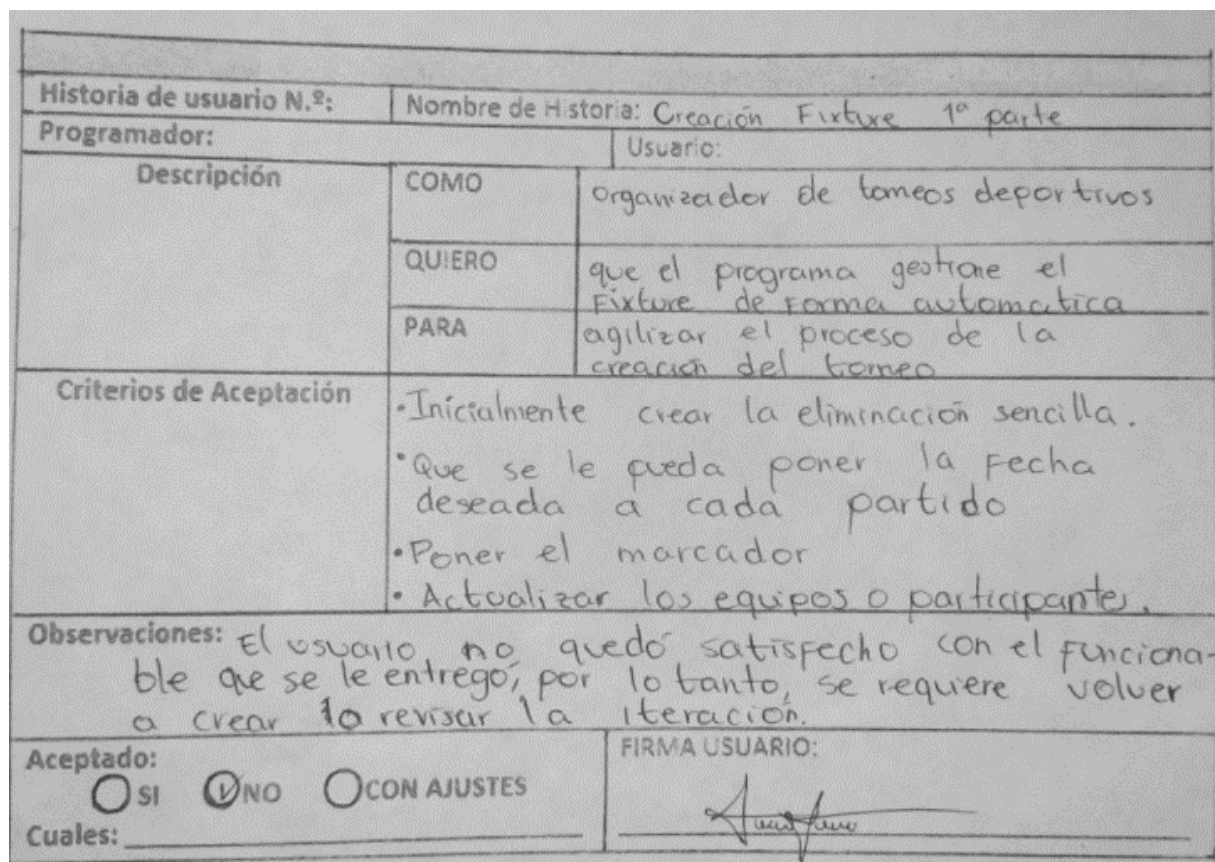 Historia de usuario N.º: Nombre de Historia: Creación Fixture 1º parte
Programador: Usuario:
Descripción COMO organizador de torneos deportivos
QUIERO que el programa gestione el
Fixture de Forma automatica
PARA agilizar el proceso de la
creación del torneo
Criterios de Aceptación •Inicialmente crear la eliminación sencilla.
•Que se le pueda poner la Fecha
deseada a cada partido
•Poner el marcador
•Actualizar los equipos o participantes.
Observaciones: El usuario no quedó satisfecho con el funciona-
ble que se le entregó, por lo tanto, se requiere volver
a crear o revisar la iteración.
Aceptado: FIRMA USUARIO:
SI NO CON AJUSTES
Cuales: